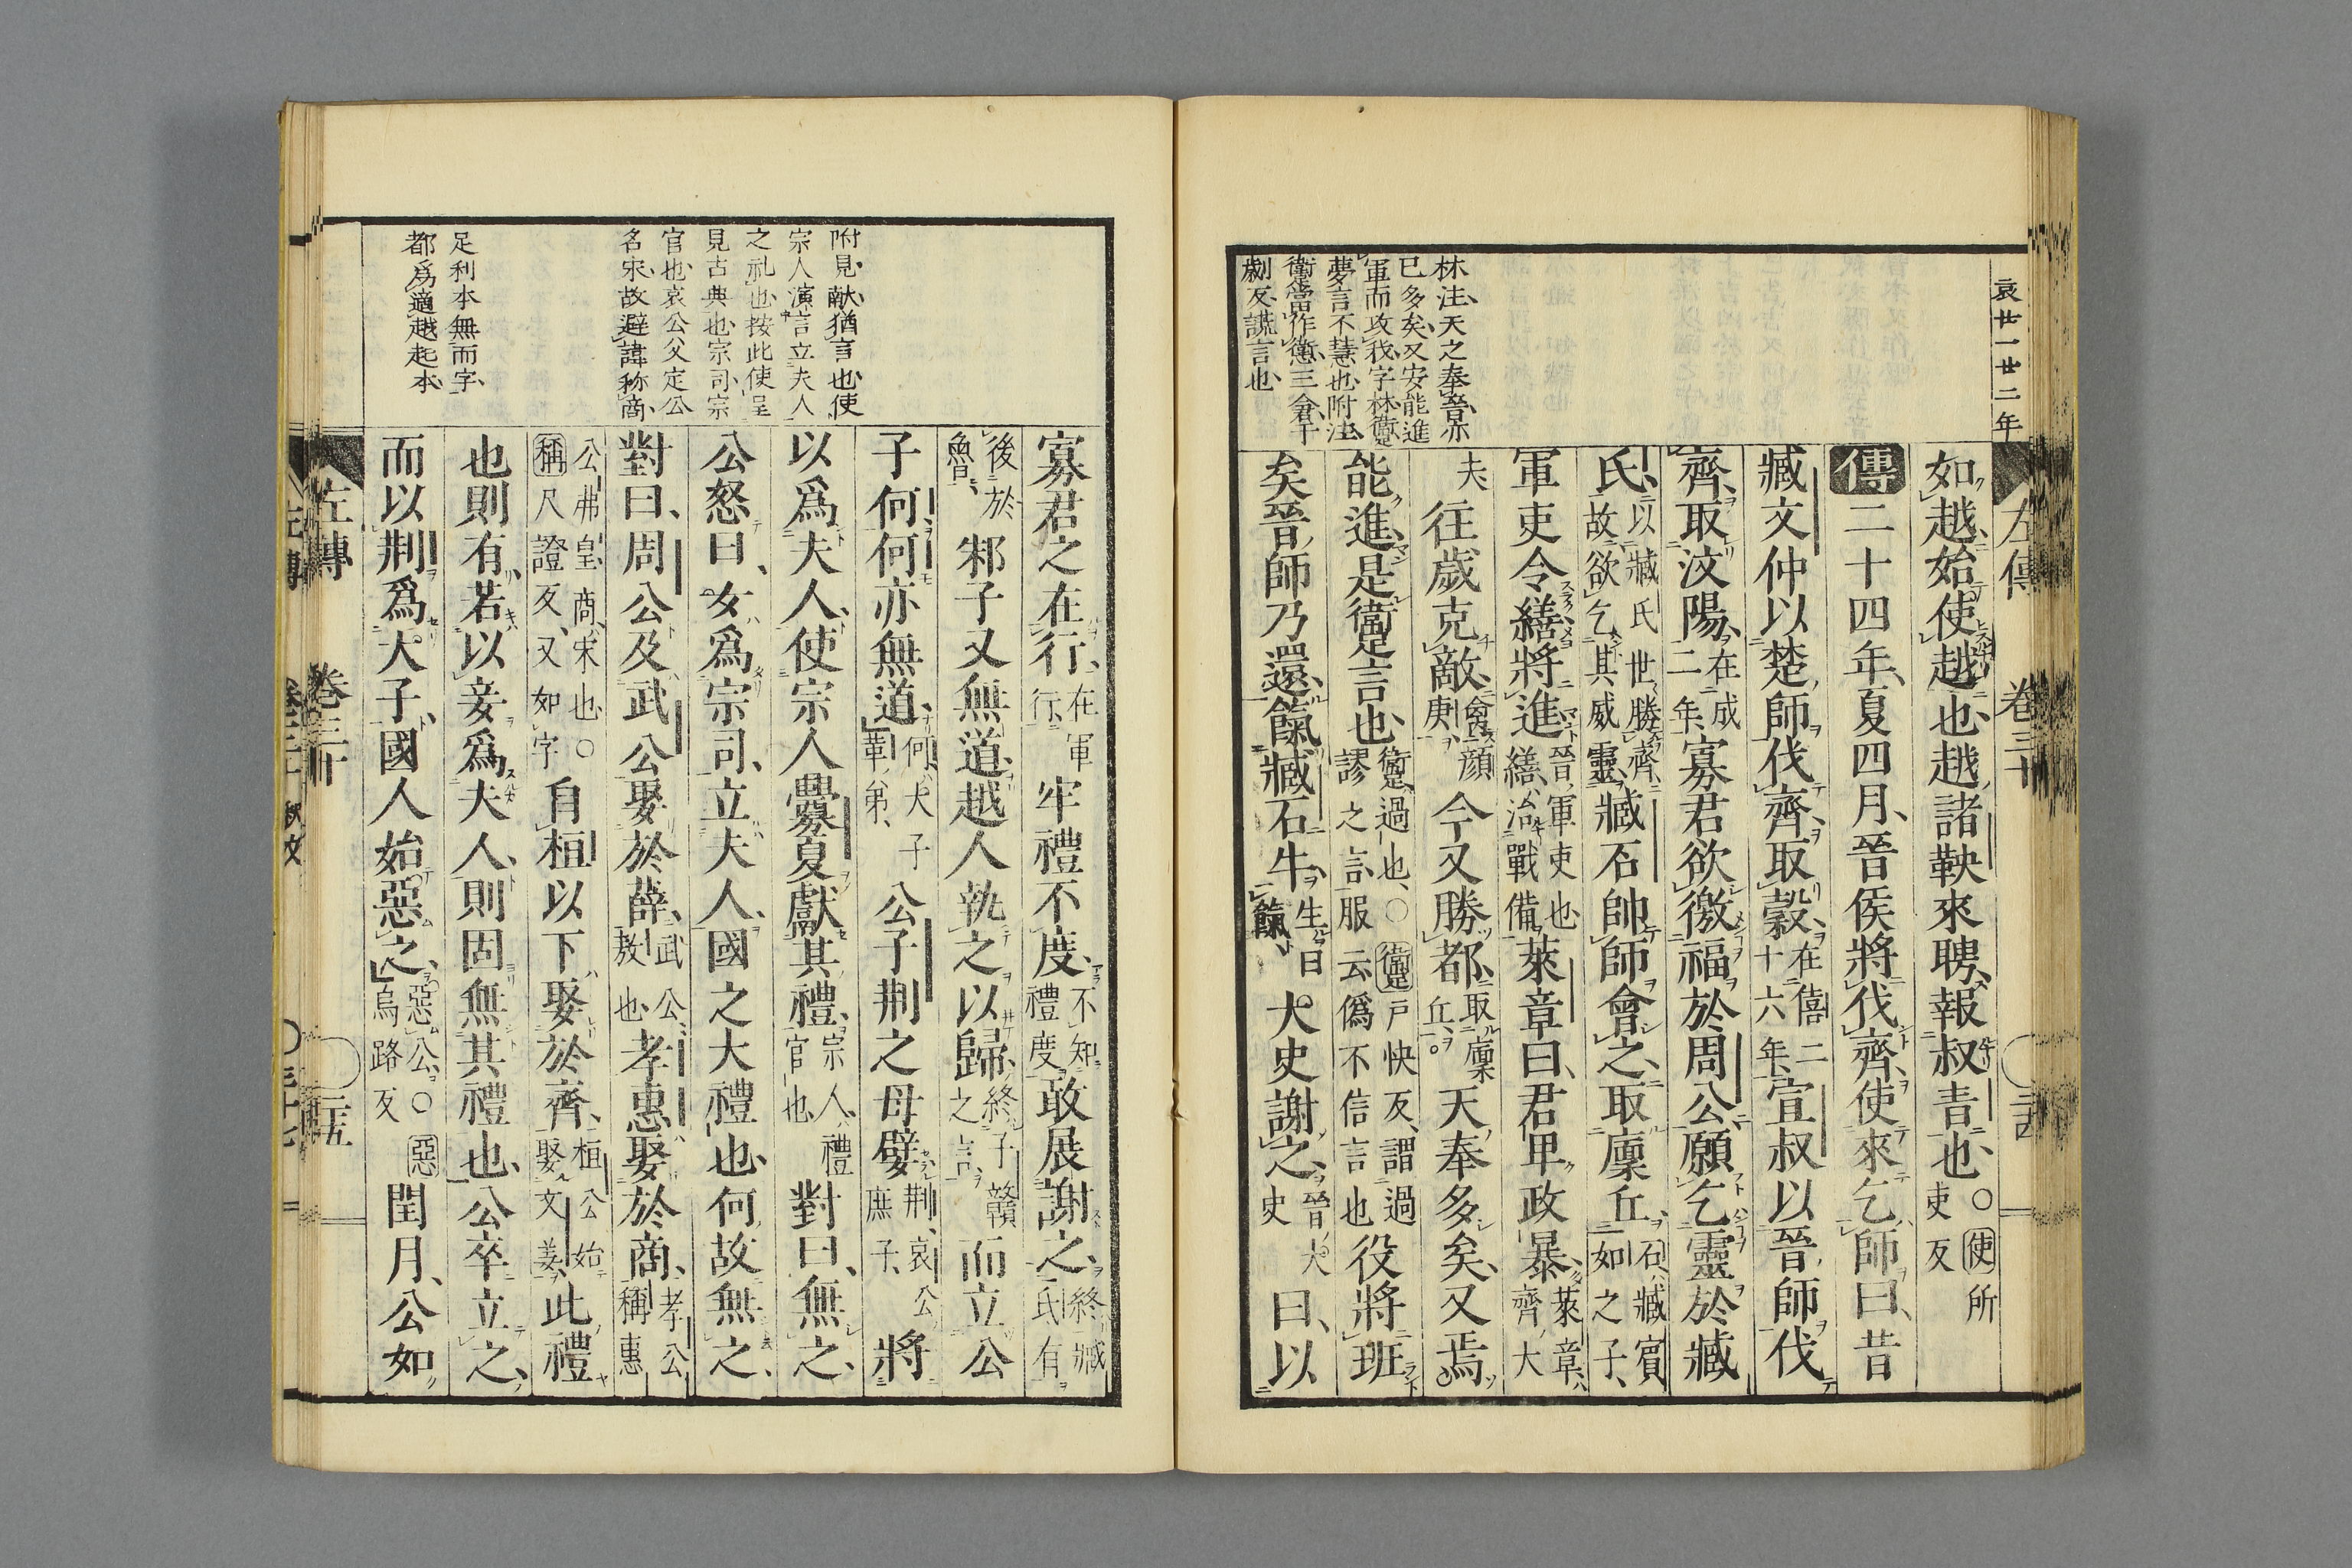 哀廿一廿二年
左傳 卷三十
林注天之奉晉亦
已多矣又安能進
軍而攻我字林𧗽
夢言不慧也附注
𧗽當作𢠩三倉于
劌反謊言也
如越始使越也越諸鞅來聘報叔青也○使所吏反
傳二十四年夏四月晉侯將伐齊使來乞師曰昔
臧文仲以楚師伐齊取穀在僖二十六年宣叔以晉師伐
齊取汶陽在成二年寡君欲徼福於周公願乞靈於臧
氏以臧氏世勝齊故欲乞其威靈臧石帥師會之取廩丘石臧賓如之子
軍吏令繕將進晉軍吏也繕治戰備萊章曰君卑政暴萊章齊大
夫往歲克敵禽顏庚今又勝都取廩丘天奉多矣又焉
能進是𧗽言也𧗽過也○𧗽戸快反謂過謬之言服云僞不信言也役將班
矣晉師乃還餼臧石牛生曰餼大史謝之晉大史曰以
附見獻猶言也使
宗人演言立夫人
之礼也按此使呈
見古典也宗司宗
官也哀公父定公
名宋故避諱称商
足利本無而字
都爲適越起本
寡君之在行在軍行牢禮不度不知禮度敢展謝之終臧氏有
後於魯邾子又無道越人執之以歸終子贛之言而立公
子何何亦無道何大子革弟公子荆之母嬖荆哀公庶子將
以爲夫人使宗人釁夏獻其禮宗人禮官也對曰無之
公怒曰女爲宗司立夫人國之大禮也何故無之
對曰周公及武公娶於薛武公敖也孝惠娶於商孝公稱惠
公弗皇商宋也○稱尺證反又如字自桓以下娶於齊桓公始娶文姜此禮
也則有若以妾爲夫人則固無其禮也公卒立之
而以荆爲大子國人始惡之惡公○惡烏路反閏月公如
左傳 卷三十 三五